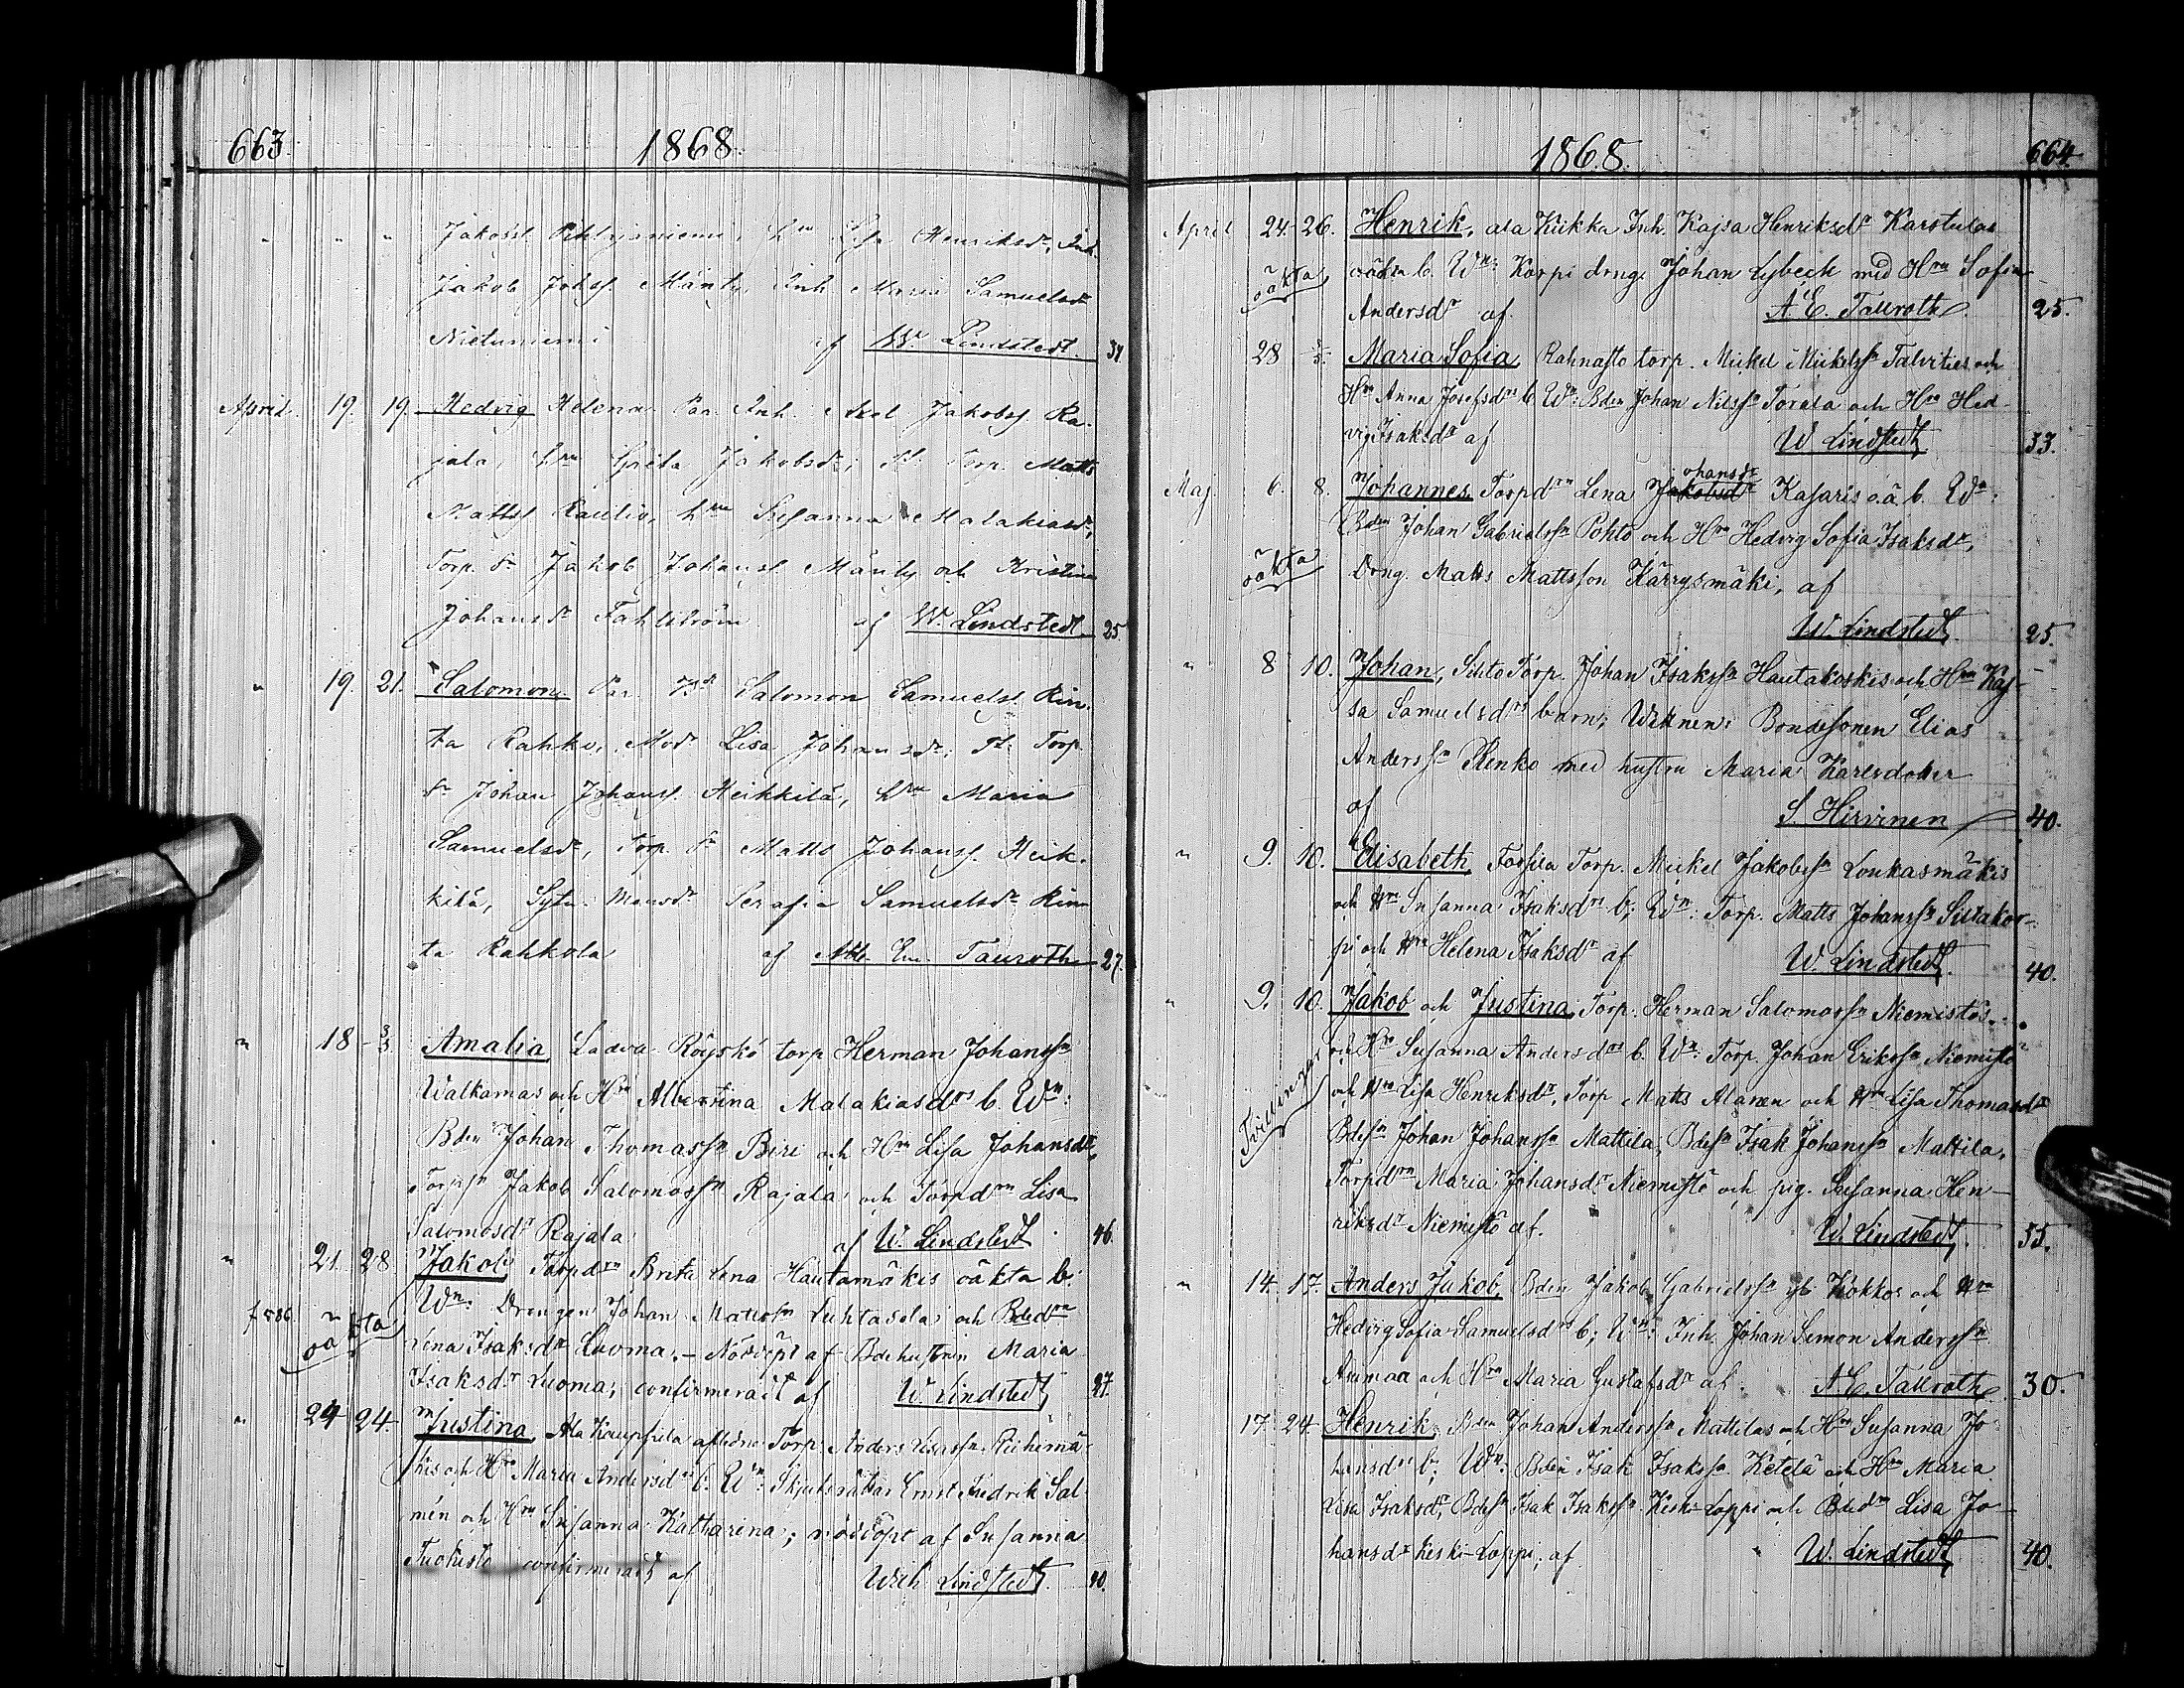 663. 1868.
" " " Jakobsd Pihlajaniemi, Hru Lisa Henriksdr, Inh.
Jakob Johss. Mänty, Inh. Maria Samuelsdr
Nietuniemi af W. Lindstedt. 31
April. 19. 19 Hedvig Helena Par. Inh. Axel Jakobss. Ra-
jala, Hru Greta Jakobsdr; Tt. Torp. Matts
Mattss Rautio, Hru Susanna Malakiasdr,
Torp. Sn Jakob Johanss. Mänty och Kristina
Johansdr Fahlström af W. Lindstedt 25.
" 19. 21. Salomon. Par. Bd Salomon Samuelss. Rin-
ta Rahko, Modr Lisa Johansdr; Tt. Torp.
Sn Johan Johanss. Heikkilä, Hru Maria
Samuelsdr, Torp. Sn Matts Johanss. Heik-
kilä, Serafia Samuelsdr Rin
ta Rahkola af Tallroth 27.
" 18 - 3/5 Amalia Ladva Röyskö torp Herman Johanssn
Walkamas och Hru Albertina Malakiasdrs b. Wn:
Bden Johan Thomassn Biri och Hru Lisa Johansdr,
Torpsn Jakob Salomossn Rajala och Torpdrn Lisa
Salomosdr Rajala af W. Lindstedt 46.
" 21. 28 Jakob, Torpdrn Brita Lena Hautamäkis oäkta b.
f 586 oäkta Wn: Drengen Johan Mattssn Luhtasela och Bdedrn
Lena Isaksdr Luoma. – Nöddöpt af Bdehustrun Maria
Isaksdr Luoma; confirmeradt af W. Lindstedt, 27.
" 24 24. Justina, Ala Kauppila afledne Torp. Anders Isassn Riihimä-
kis och Hru Maria Andersdrs b. Wn: Skjutsrättar Ernst Fredrik Sal-
mén och Hru Susanna Katharina; nöddöpt af Susanna
Tuokisto confirmeradt af Wilh Lindstedt. 40.
1868. 664
April 24. 26. Henrik, ala Kiikka Inh. Kajsa Henriksdr Karstulas
oäkta oäkta b. Wn: Korpi drng. Johan Lybeck med Hru Sofia
Andersdr af A. E. Tallroth. 25.
28 3/5. Maria Sofia, Rahnasto torp. Mickel Mickelssn Talvities och
Hru Anna Josefsdrs b. Wn: Bden Johan Nilssn Torala och Hru Hed-
vig Isaksdr af W Lindstedt 33.
ohansdr
Maj. 6. 8. Johannes Torpdrn Lena Jakobsdr Kasaris o.ä. b. Wn:
Bden Johan Gabrielssn Pohto och Hru Hedvig Sofia Isaksdr,
oäkta Drng. Matts Mattsson Kärrysmäki, af
W. Lindstedt, 25.
" 8 10. Johan, Sihto Torp. Johan Isakssn Hautakoskis och Hru Kaj-
sa Samuelsdrs barn; Witnen: Bondesonen Elias
Anderssn Renko med hustru Maria Karlsdotter
af S. Hirvinen 40.
" 9. 10. Elisabeth, Torsila Torp. Mickel Jakobssn Loukasmäkis
och Hru Susanna Isaksdrs b; Wn: Torp. Matts Johanssn Siltakor-
pi och Hru Helena Isaksdr af W. Lindstedt. 40.
" 9. 10. Jakob och Justina, Torp. Herman Salomossn Niemistös
Tvillingar och Hru Susanna Andersdrs b. Wn: Torp. Johan Erikssn Niemistö
och Hru Lisa Henriksdr, Torp Matts Alanen och Hru Lisa Thomasdr
Bdessn Johan Johanssn Mattila, Bdessn Isak Johanssn Mattila,
Torpdrn Maria Johansdr Niemistö och pig. Susanna Hen-
riksdr Niemistö af. W. Lindstedt, 35.
" 14. 17. Anders Jakob, Bden Jakob Gabrielssn Kokkos och Hru
Hedvig Sofia Samuelsdrs b; Wn: Inh. Johan Simon Anderssn
Ammaa och Hru Maria Gustafsdr af. A. E. Tallroth 30.
17. 24. Henrik, Bden Johan Anderssn Mattilas och Hru Susanna Jo-
hansdrs b; Wn: Bden Isak Isakssn Ketelä och Hru Maria
Lisa Isaksdr, Bdessn Isak Isakssn Keski-Loppi och Bdedrn Lisa Jo-
hansdr Keski-Loppi, af W. Lindstedt, 40.